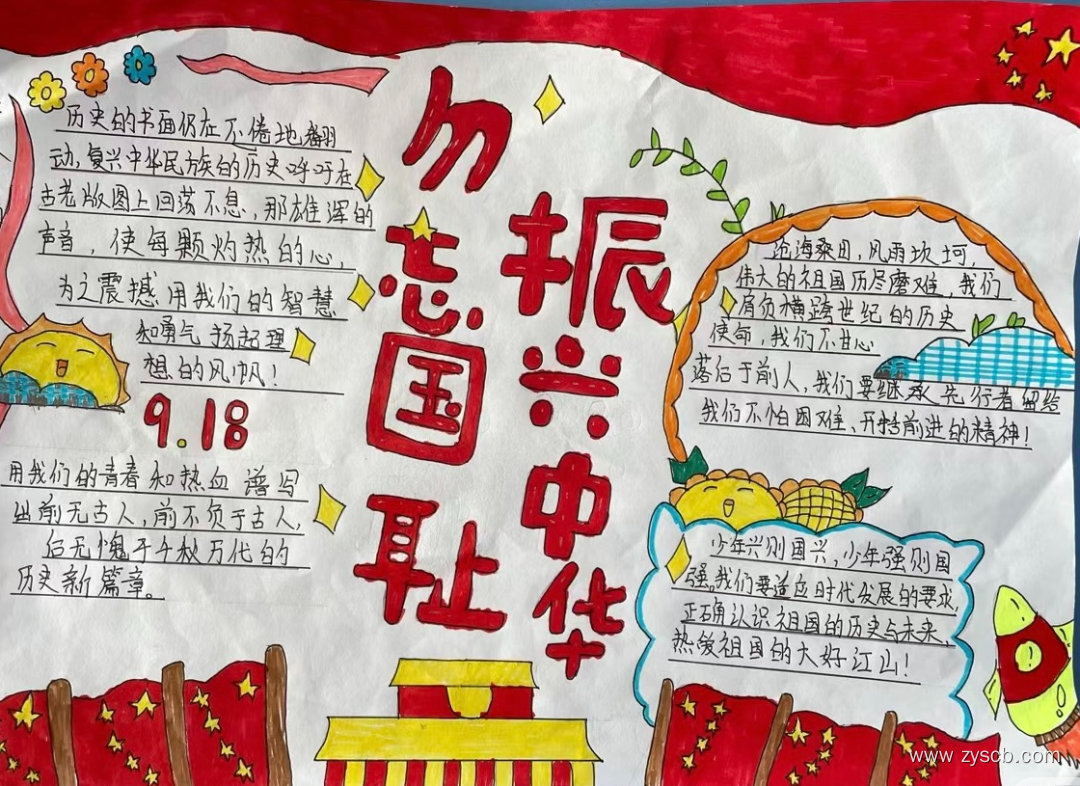 勿忘国耻
振兴中华
历史的书面仍在不倦地翻
动,复兴中华民族的历史呼吁在
古老版图上回荡不息,那雄浑的
声音,使每颗灼热的心,
为之震撼用我们的智慧
和勇气扬起理
想的风帆!
9.18
用我们的青春和热血谱写
出前无古人,前不负于古人,
后无愧于千秋万代的
历史新篇章。
沧海桑田,风雨坎坷,
伟大的祖国历尽磨难,我们
肩负横跨世纪的历史
使命,我们不甘心
落后于前人,我们要继承先行者留给
我们不怕困难、开拓前进的精神!
少年兴则国兴,少年强则国
强,我们要适应时代发展的要求,
正确认识祖国的历史与未来,
热爱祖国的大好江山!
www.zyscb.com